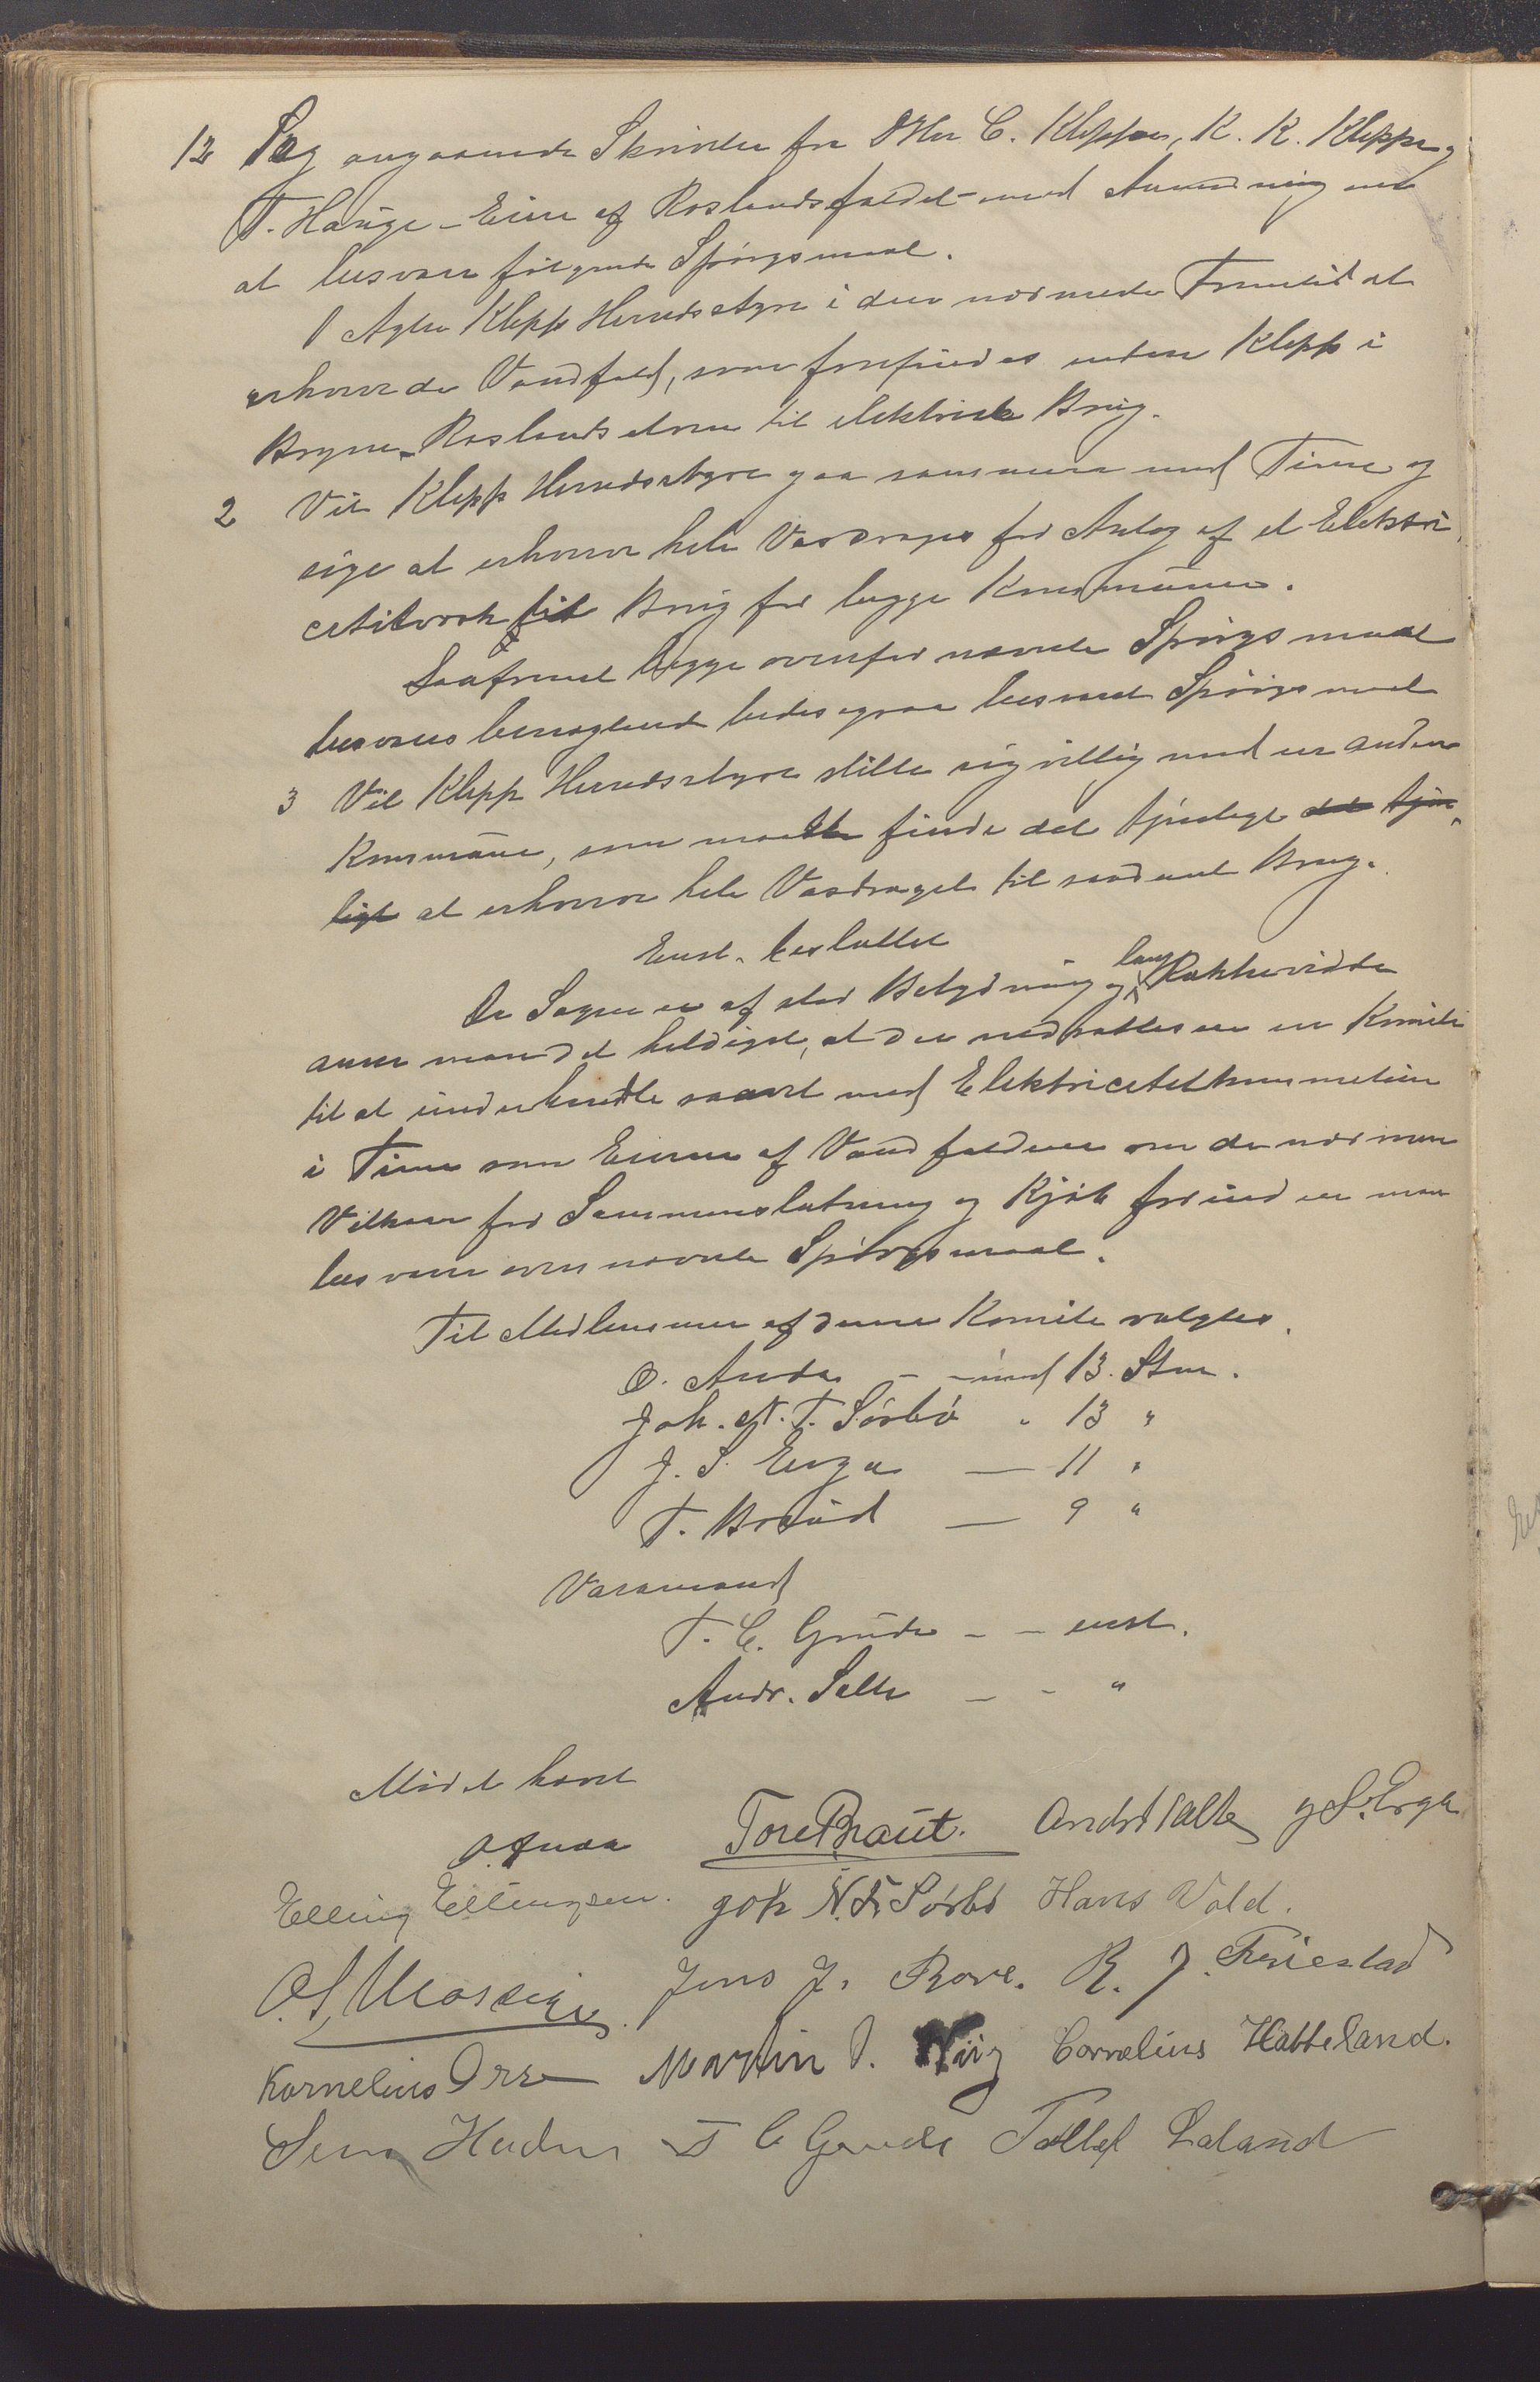 12 Sag angaaende Skrivelse fra DHrr C. Kleppe, K. K. Kleppe og
T. Hauge - Eiere af Roslandsfaldet - med Anmodning om
at besvare følgende Spørgsmaal.
1 Agter Klepp Herredsstyre i den nærmeste Fremtid at
erhverve de Vandfald, som forefindes inden Klepp i
Bryne-Roslandselven til elektrisk Brug.
2 Vil Klepp Herredsstyre gaa sammen med Time og
søge at erhverve hele Vasdraget for Anlæg af et Elektri
citetsværk til Brug for begge Kommuner.
Saafremt begge ovenfor nævnte Spørgsmaal
besvares benægtende bedes ogsaa besvaret Spørgsmaal
3 Vil Klepp Herredsstyre stille sig villig med en anden
Kommune, som maatte finde det tjenligt det tjen-
ligt at erhverve hele Vasdraget til saadant Brug.
Enst. besluttet
Da Sagen er af stor Betydning og lang Rækkevidde
anser man det heldigst, at der nedsættes en Komite
til at underhandle saavel med Elektricitetskommissionen
i Time som Eierne af Vandfaldene om de nærmere
Vilkaar for Sammenslutning og Kjøb forinden man
besvarer ovennævnte Spørgsmaal.
Til Medlemmer af denne Komite valgtes
O. Anda - - med 13 Stm.
Joh. N. T. Sørbø " 13 "
J. S. Erga — 11 "
T. Braut — 9 "
Varamænd
T. C. Grude - - enst.
Andr. Salte - - "
Mødet hævet
O Anda Tore Braut. Andr Salte J S. Erga
Elling Ellingsen. Joh N. T. Sørbø Hans Vold.
O. S. Mossige Jens J. Bore. R. J. Friestad
Kornelius Orre Martin O. Wiig Cornelius Hatteland.
Hadne T C Grude Tollef Laland